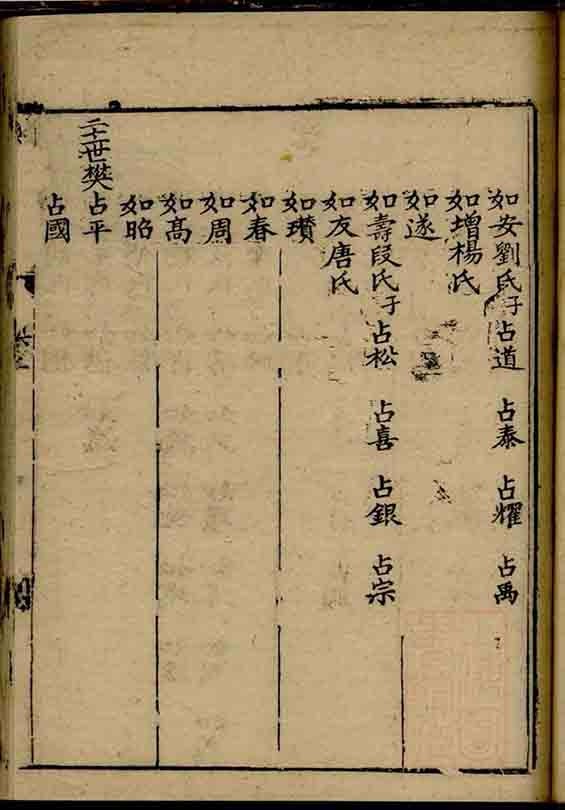 如安劉氏子占道 占泰 占耀 占禹
如增楊氏
如遂
如壽段氏子占松 占喜 占銀 占宗
如友唐氏
如瓚
如春
如周
如高
如昭
二十世樊占平
占國